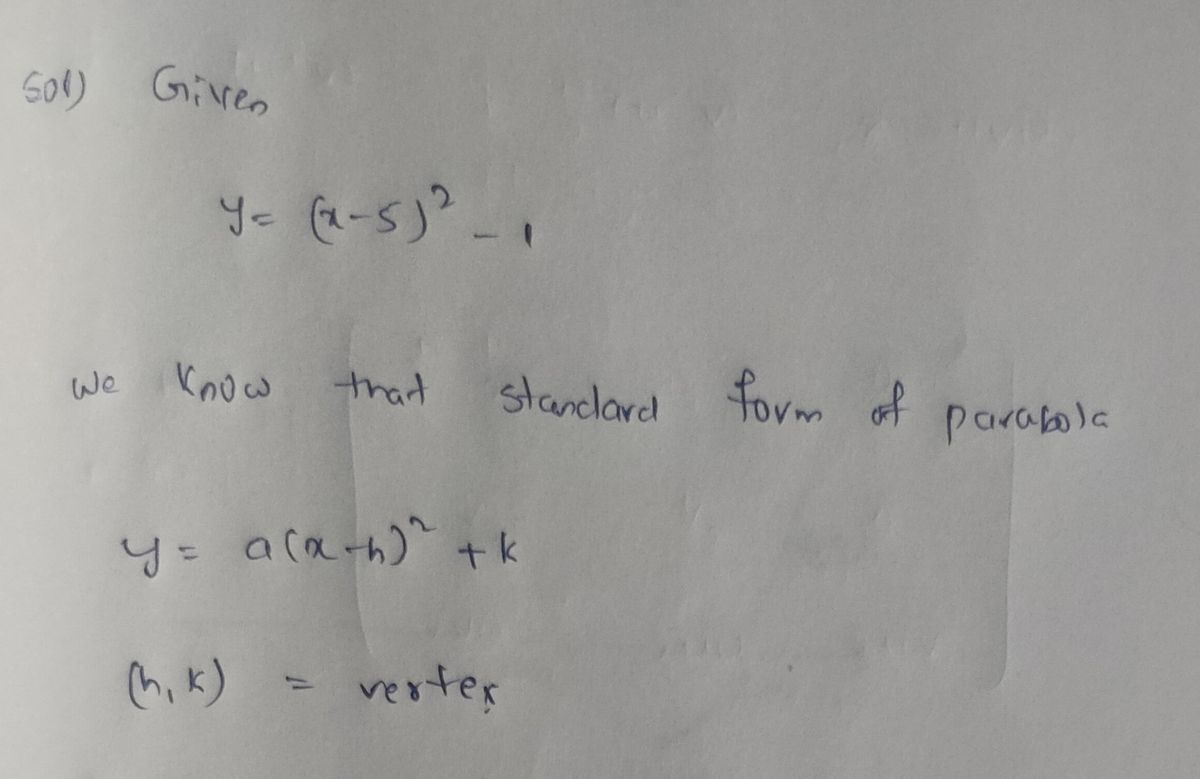 Sol) Given
y = (x-5)² - 1
We know that standard form of parabola
y = a(x-h)² + k
(h, k) = vertex